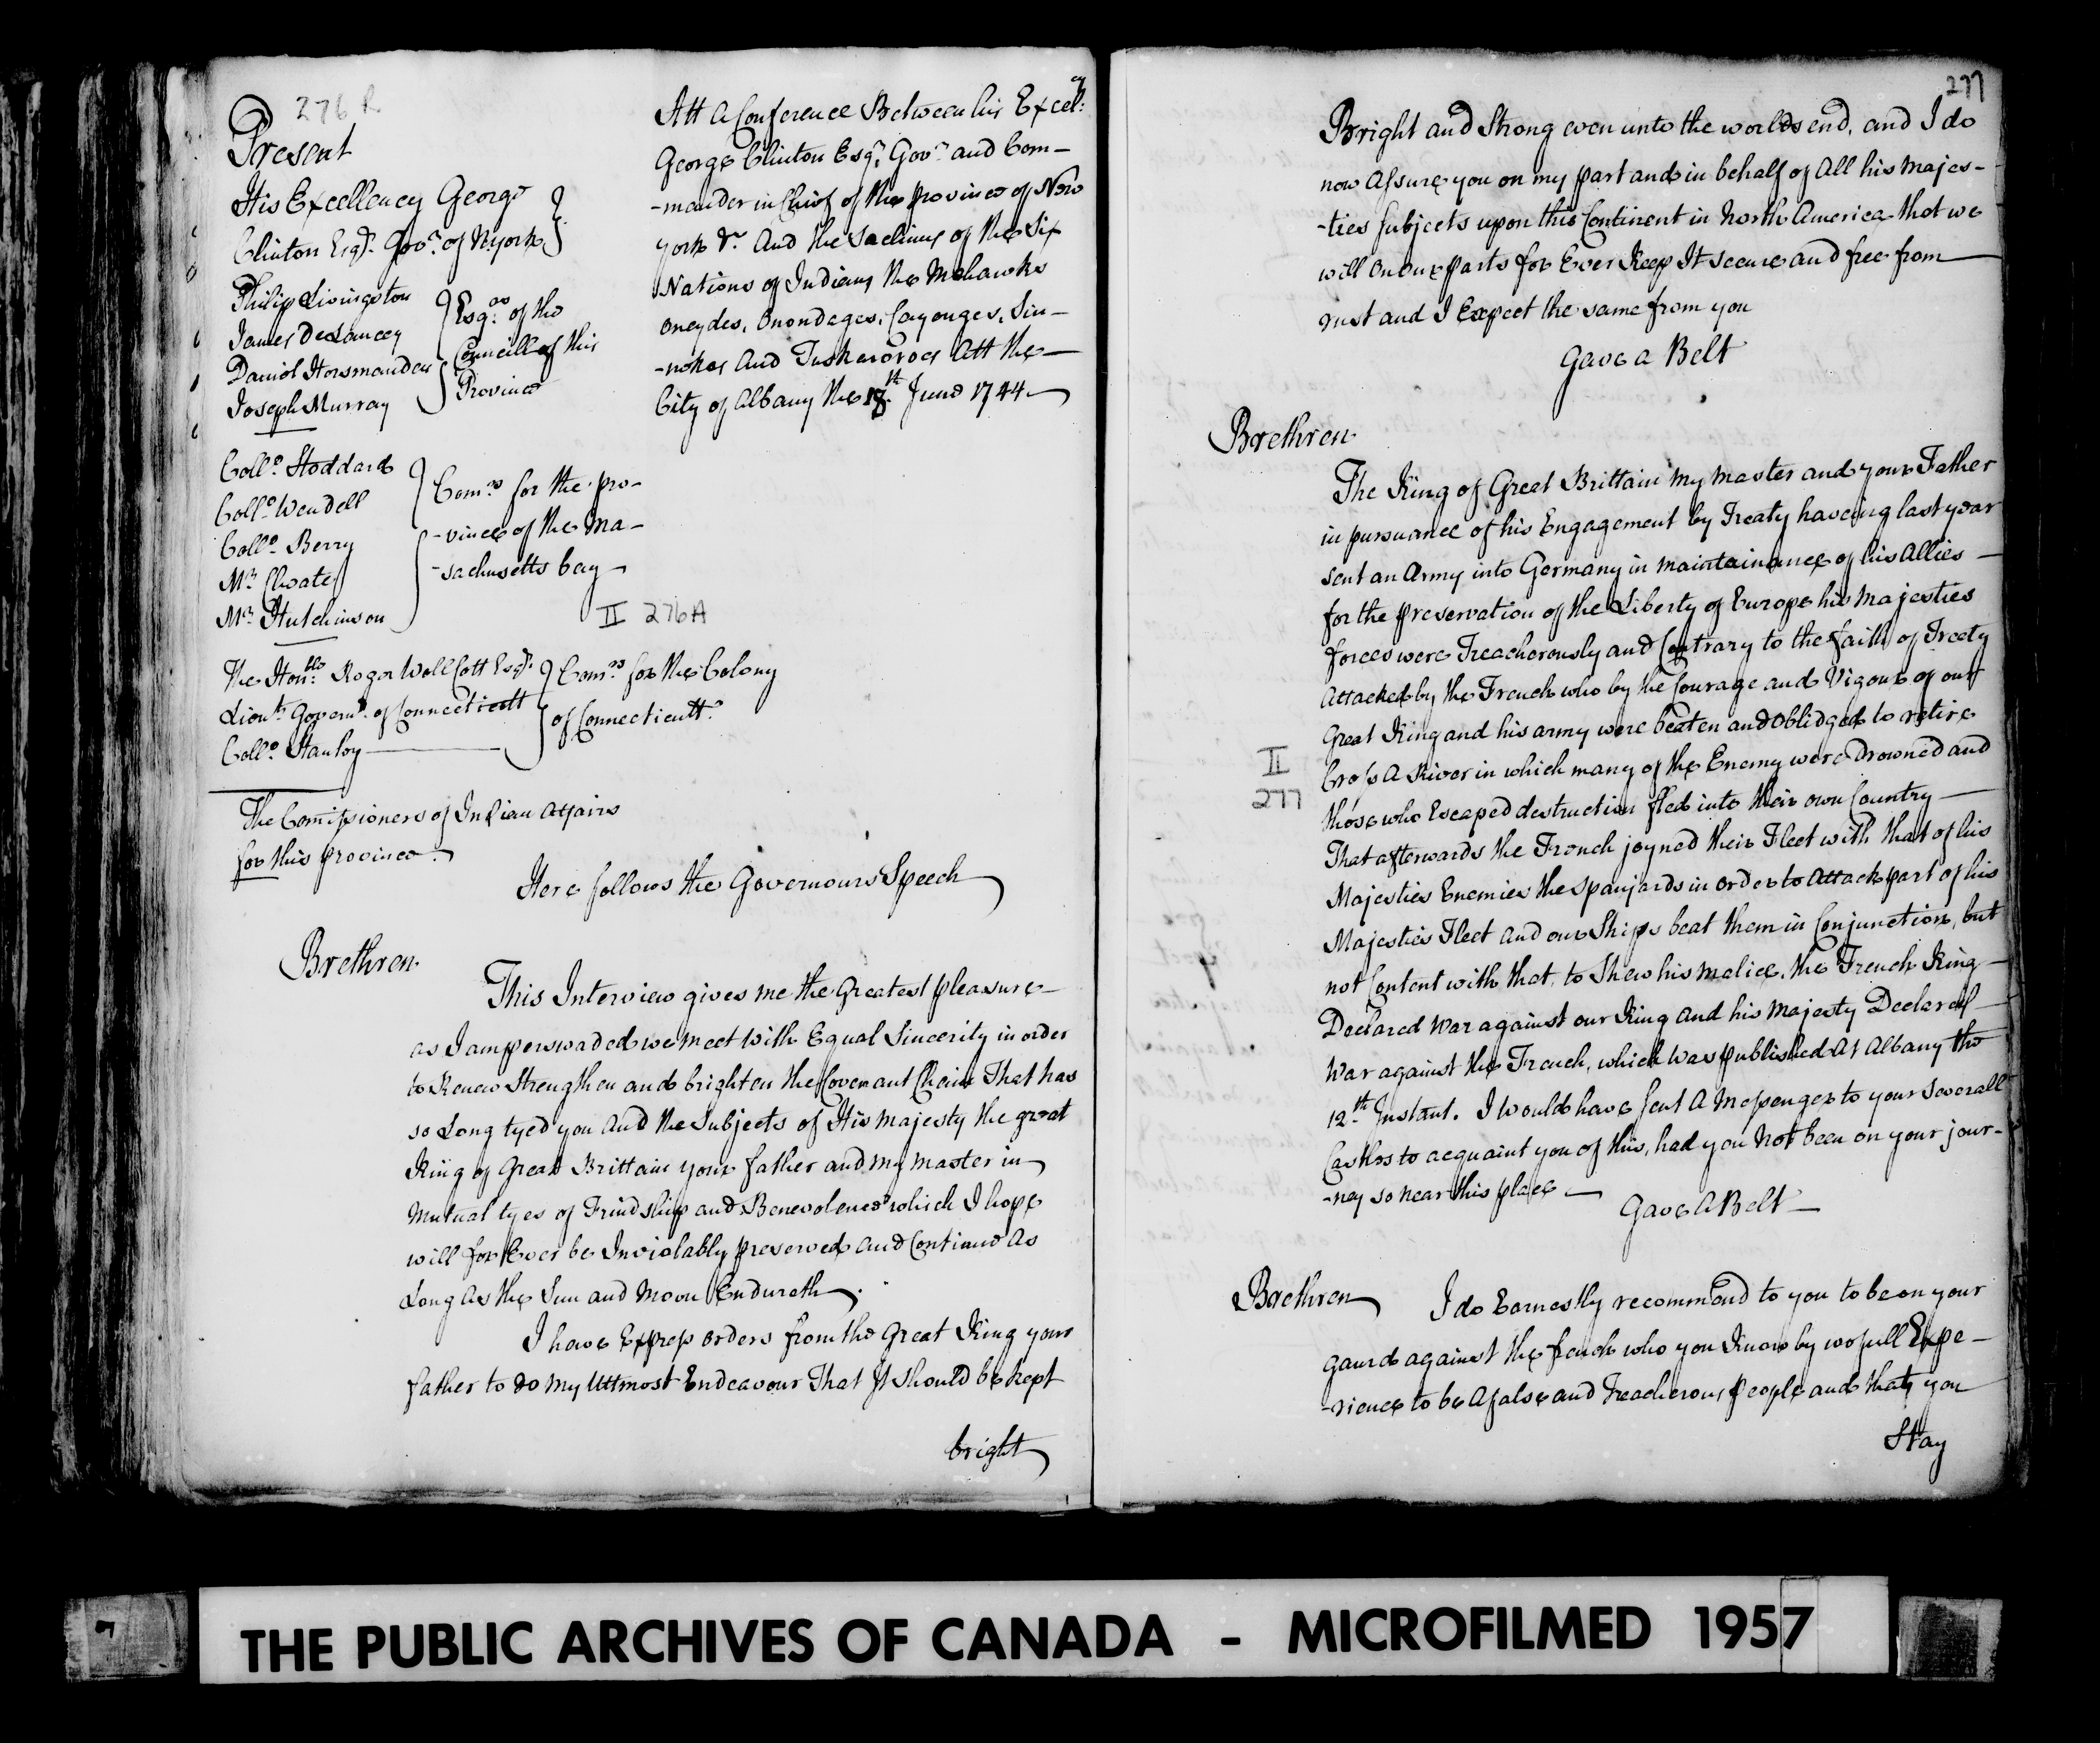 276 R
Present
His Excellency George
Clinton Esqr. Govr. of N:york
Philip Livingston
James DeLancey
Daniel Horsmanden
Joseph Murray
Esqrs. of the
Councill of this
Province
Collo. Stoddard
Collo. Wendell
Collo. Berry
Mr. Choate
Mr. Hutchinson
Comrs for the pro-
-vince of the Ma-
-sachusetts bay
II 276A
The Honble: Roger Wollcott Esqr.
Lieut. Governr. of Connecticutt
Collo. Stanley
Comrs for the Colony
of Connecticutt.
The Comissioners of Indian affairs
for this province.
Att a Conference Between his Excelcy:
George Clinton Esqr. Govr. and Com-
-mander in Chief of the province of New
york &c. And the Sachims of the Six
Nations of Indians the Mohawks
oneydes, Onondages, Cayouges, Sin-
-nekes And Tuskaroroes Att the
City of Albany the 18th. June 1744
Here follows the Governours Speech
Brethren.
This Interview gives me the Greatest pleasure
as I am perswaded we meet with Equal Sincerity in order
to Renew Strengthen and brighten the Covenant Chain That has
so Long tyed you and the Subjects of His Majesty the great
King of Great Brittain your father and my master in
Mutual tyes of Frindship and Benevolence which I hope
will for Ever be Inviolably preserved and Continue As
Long As the Sun and Moon Endureth.
I have Express orders from the Great King your
father to do my Uttmost Endeavour That It should be kept
bright
277
Bright and Strong even unto the worlds end, and I do
now Assure you on my part and in behalf of All his Majes-
-ties Subjects upon this Continent in North America that we
will on our parts for Ever Keep It secure and free from
rust and I Expect the same from you
Gave a Belt
Brethren
The King of Great Brittain my master and your Father
in pursuance of his Engagement by Treaty haveing last year
sent an Army into Germany in maintainance of his Allies
for the preservation of the Liberty of Europe his Majesties
forces were Treacherously and Contrary to the faith of Treety
Attacked by the French who by the Courage and Vigour of our
Great King and his army were beaten and Oblidged to retire
Cross A River in which many of the Enemy were Drowned and
those who Escaped destruction fled into their own Country
II
277
That afterwards the French joyned their Fleet with that of his
Majesties Enemies the Spanjards in order to Attack part of his
Majesties Fleet and our Ships beat them in Conjunction, but
not Content with that, to Shew his malice, the French King
Declared War against our King and his Majesty Declared
War against the French, which Was published At Albany the
12th. Instant. I Would have Sent A Messenger to your Severall
Castles to acquaint you of this, had you Not been on your jour-
-ney so near this place
Gave A Belt
Brethren
I do Earnestly recommend to you to be on your
gaurd against the french who you Know by wofull Expe-
-rience to be A false and Treacherous people and that you
Stay
THE PUBLIC ARCHIVES OF CANADA - MICROFILMED 1957